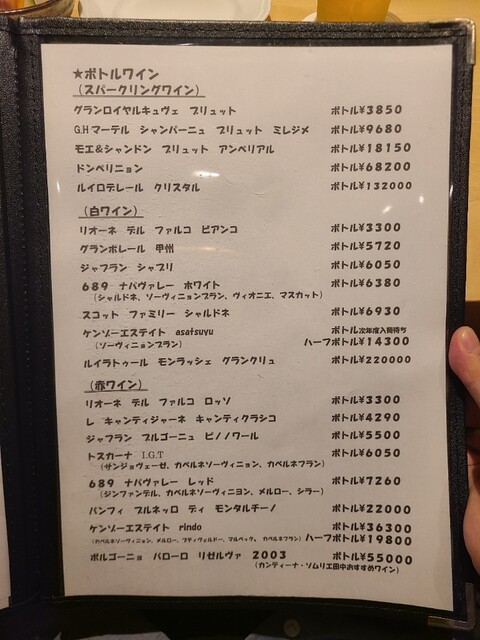 ★ボトルワイン
(スパークリングワイン)
グランロイヤルキュヴェ ブリュット ボトル¥3850
G.Hマーテル シャンパーニュ ブリュット ミレジメ ボトル¥9680
モエ&シャンドン ブリュット アンペリアル ボトル¥18150
ドンペリニョン ボトル¥68200
ルイロデレール クリスタル ボトル¥132000
(白ワイン)
リオーネ デル ファルコ ビアンコ ボトル¥3300
グランポレール 甲州 ボトル¥5720
ジャフラン シャブリ ボトル¥6050
689 ナパヴァレー ホワイト ボトル¥6380
(シャルドネ、ソーヴィニョンブラン、ヴィオニエ、マスカット)
スコット ファミリー シャルドネ ボトル¥6930
ケンゾーエステイト asatsuyu ボトル次年度入荷待ち
(ソーヴィニョンブラン) ハーフボトル¥14300
ルイラトゥール モンラッシェ グランクリュ ボトル¥220000
(赤ワイン)
リオーネ デル ファルコ ロッソ ボトル¥3300
レ キャンティジャーネ キャンティクラシコ ボトル¥4290
ジャフラン ブルゴーニュ ピノノワール ボトル¥5500
トスカーナ I.G.T ボトル¥6050
(サンジョヴェーゼ、カベルネソーヴィニョン、カベルネフラン)
689 ナパヴァレー レッド ボトル¥7260
(ジンファンデル、カベルネソーヴィニヨン、メルロー、シラー)
バンフィ ブルネッロ ディ モンタルチーノ ボトル¥22000
ケンゾーエステイト rindo ボトル¥36300
(カベルネソーヴィニョン、メルロー、プティヴェルドー、マルベック、カベルネフラン) ハーフボトル¥19800
ボルゴーニョ バローロ リゼルヴァ 2003 ボトル¥55000
(カンティーナ・ソムリエ田中おすすめワイン)